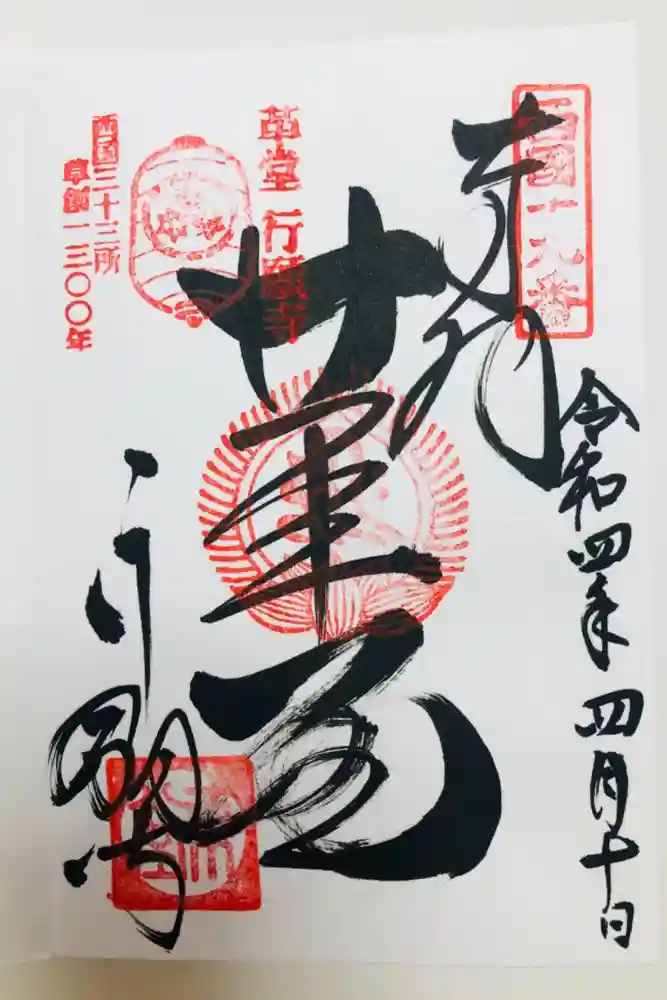 西国十九番
奉拝
令和四年四月十日
革堂
行願寺
革堂 行願寺
西国三十三所
草創一三〇〇年